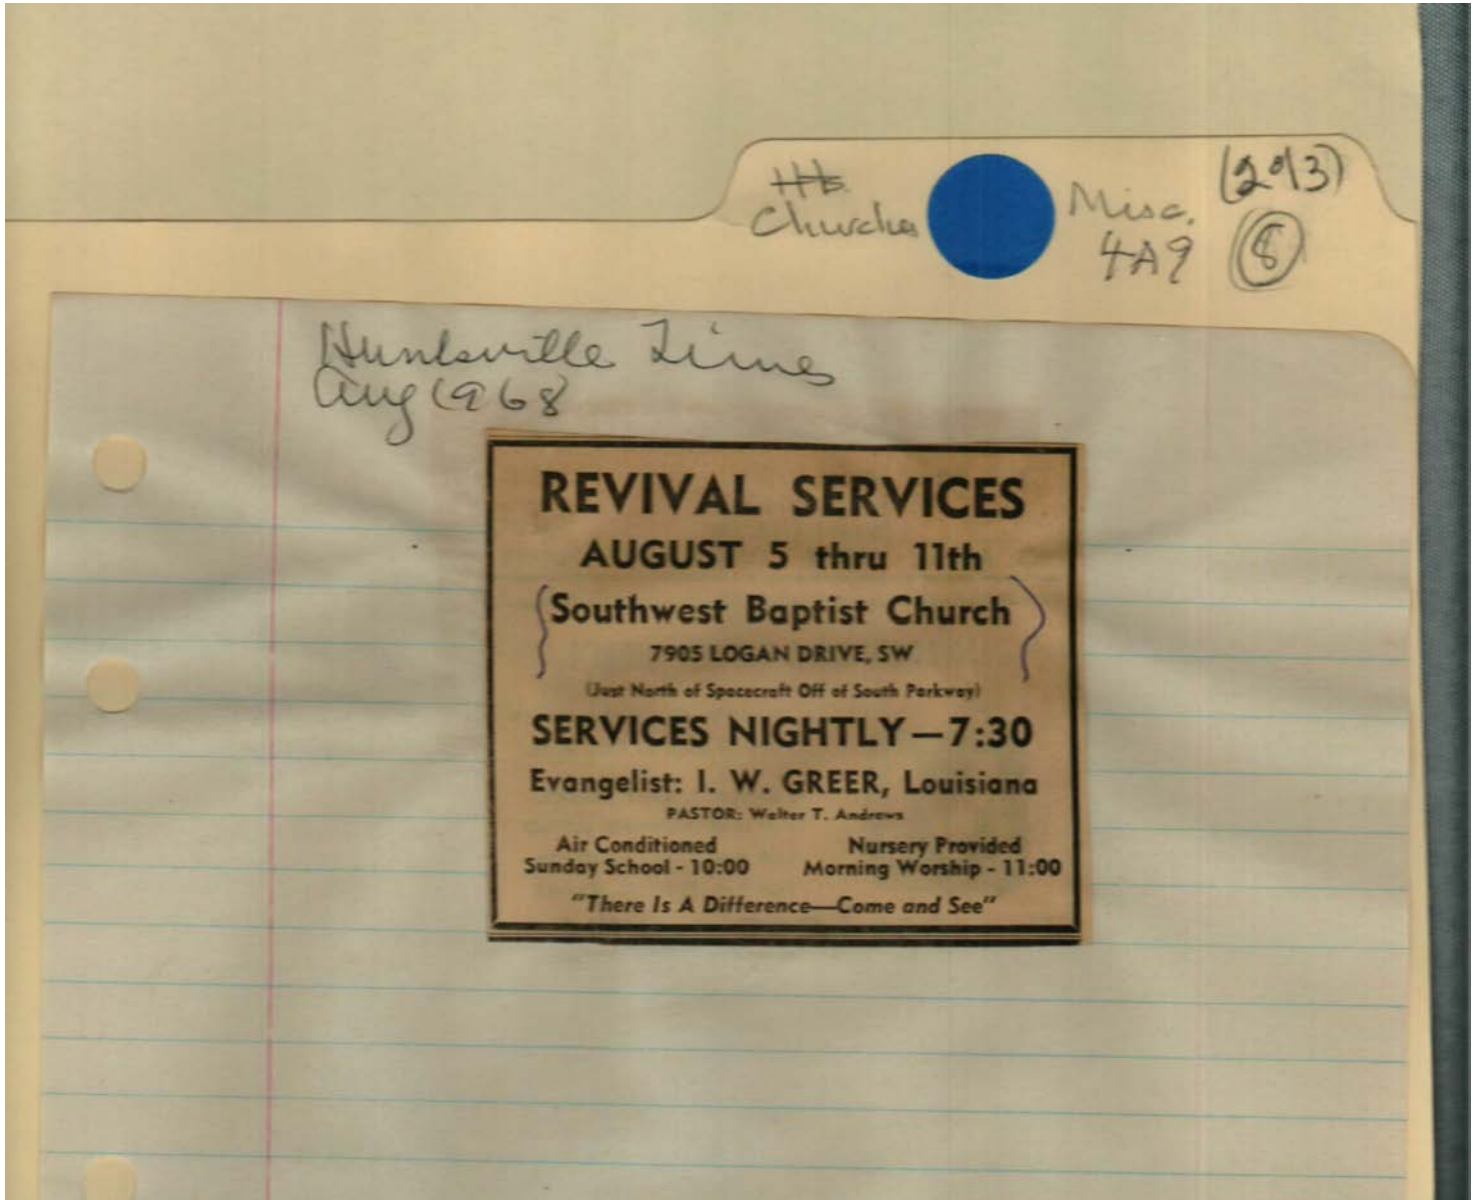 Churches
Misc.
(293)
4A9
8
Huntsville Times
Aug 1968
REVIVAL SERVICES
AUGUST 5 thru 11th
Southwest Baptist Church
7905 LOGAN DRIVE, SW
(Just North of Spacecraft Off of South Parkway)
SERVICES NIGHTLY—7:30
Evangelist: I. W. GREER, Louisiana
PASTOR: Walter T. Andrews
Air Conditioned Nursery Provided
Sunday School - 10:00 Morning Worship - 11:00
"There Is A Difference—Come and See"